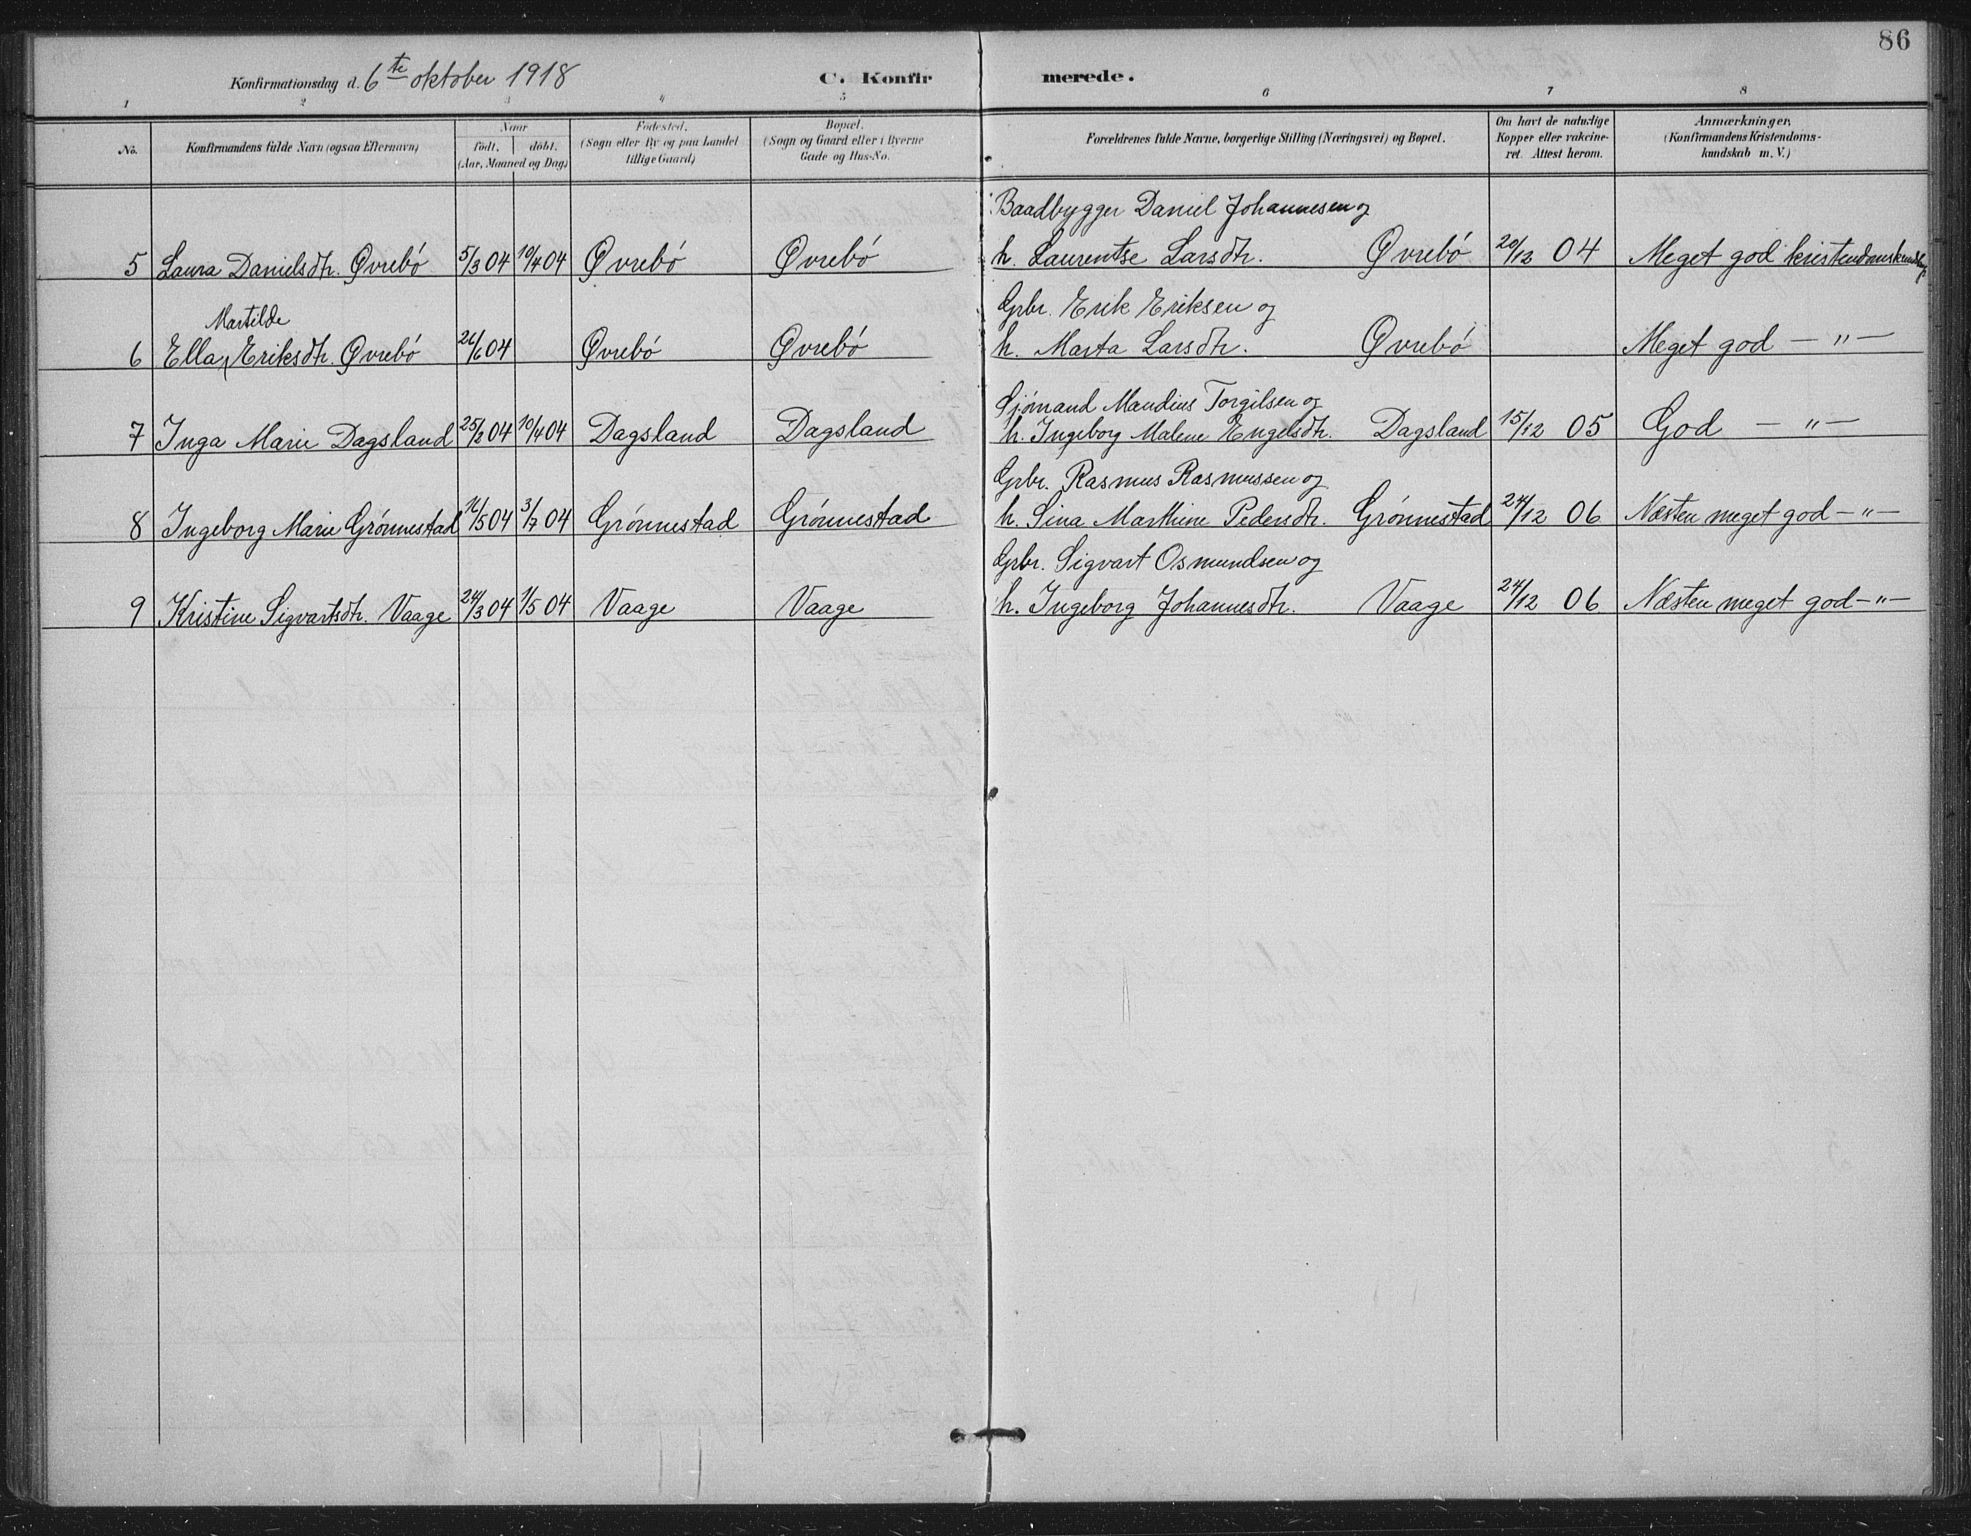 86
Konfirmationsdag d. 6te oktober 1918 C. Konfirmerede.
1 2 3 4 5 6 7 8
No. Konfirmandens fulde Navn (ogsaa Efternavn) Naar født. døbt. (Aar, Maaned og Dag) Fødested. (Sogn eller By og paa Landet tillige Gaard) Bopæl. (Sogn og Gaard eller i Byerne Gade og Hus-No. Forældrenes fulde Navne, borgerlige Stilling (Næringsvei) og Bopæl. Om havt de naturlige Kopper eller vakcineret. Attest herom. Anmærkninger. (Konfirmandens Kristendomskundskab m. V.)
Baadbygger Daniel Johannesen og
5 Laura Danielsdtr. Øvrebø 5/3 04 10/4 04 Øvrebø Øvrebø h. Laurentse Larsdtr. Øvrebø 20/12 04 Meget god kristendomskundskap
Martilde Grbr. Erik Eriksen og
6 Ella Eriksdtr. Øvrebø 26/6 04 Øvrebø Øvrebø h. Marta Larsdtr. Øvrebø Meget god — " —
Sjømand Mandius Torgilsen og
7 Inga Marie Dagsland 25/2 04 10/4 04 Dagsland Dagsland h. Ingeborg Malene Engelsdtr. Dagsland 15/12 05 God — " —
Grbr. Rasmus Rasmussen og
8 Ingeborg Marie Grønnestad 16/5 04 3/7 04 Grønnestad Grønnestad h. Sina Marthine Pedersdtr. Grønnestad 24/12 06 Næsten meget god — " —
Grbr. Sigvart Osmundsen og
9 Kristine Sigvartsdtr. Vaage 24/3 04 1/5 04 Vaage Vaage h. Ingeborg Johannesdtr. Vaage 24/12 06 Næsten meget god — " —